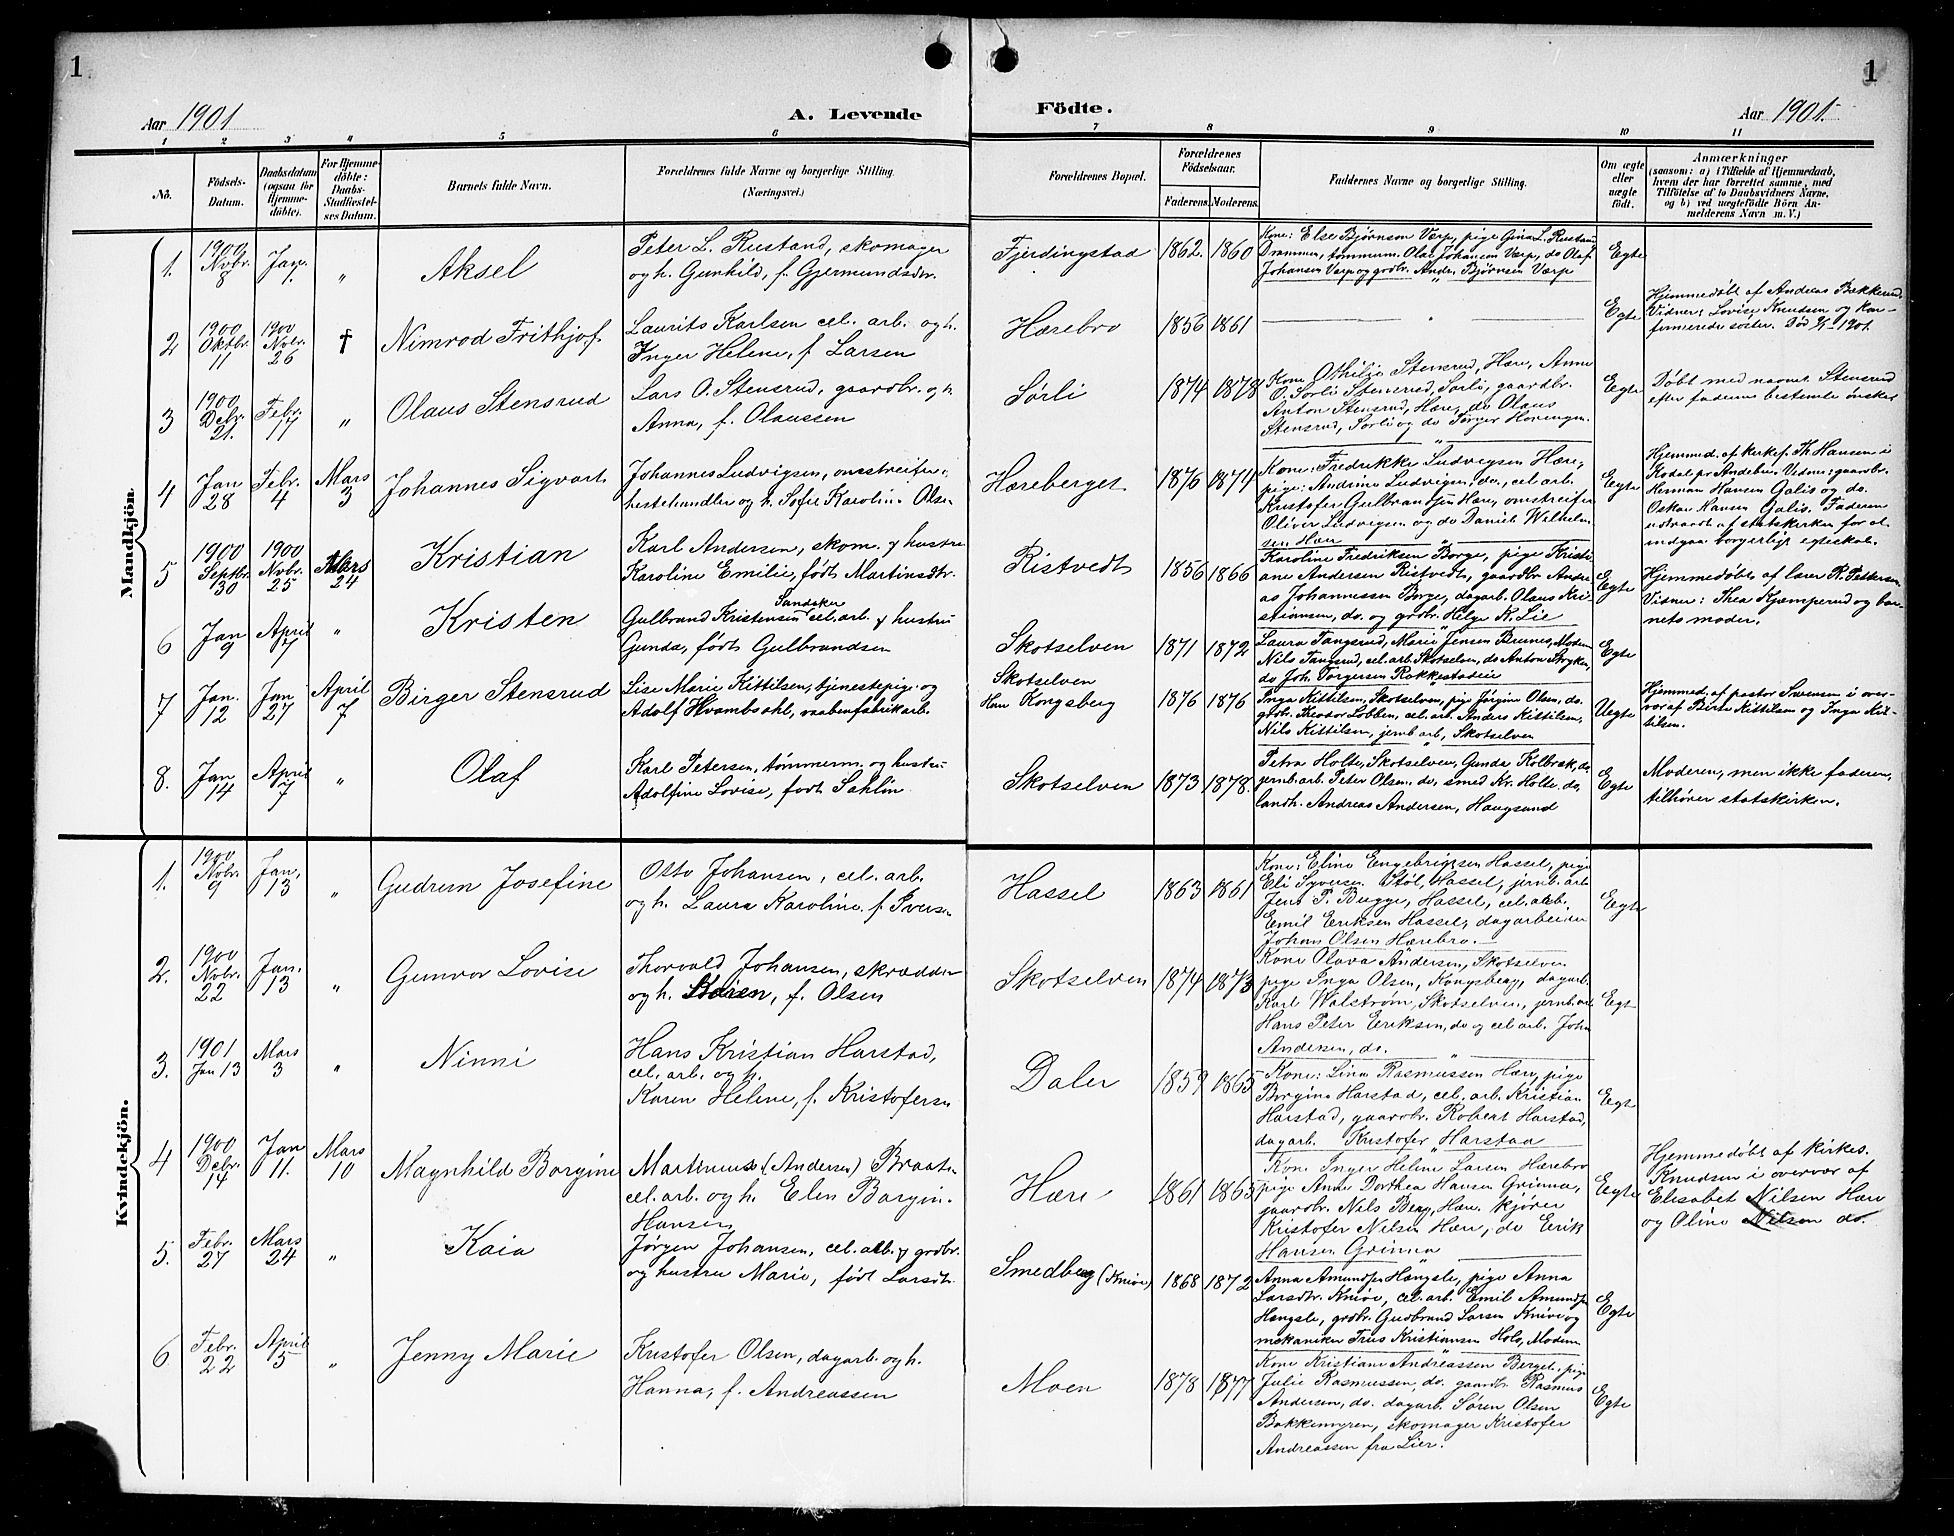 1
1
Aar 1901
A. Levende
Födte.
Aar 1901.
1 2 3 4 5 6 7 8 9 10 11
Nö.
Födsels-
Datum.
Daabsdatum
(ogsaa for
Hjemme-
döbte).
For Hjemme-
döbte:
Daabs-
Stadfæstel-
ses Datum.
Barnets fulde Navn.
Forældrenes fulde Navne og borgerlige Stilling
(Næringsvei.)
Forældrenes Bopæl.
Forældrenes
Födselsaar.
Faderens. Moderens.
Faddernes Navne og borgerlige Stilling.
Om ægte
eller
uægte
födt.
Anmærkninger
(saasom: a) i Tilfælde af Hjemmedaab,
hvem der har forrettet samme, med
Tilföielse af to Daabsvidners Navne,
og b) ved uægtefödte Börn An-
melderens Navn m. V.)
Mandkjön.
1.
1900
Novbr.
8
Jan.
1.
"
Aksel
Peter L. Rustand, skomager
og h. Gunhild, f. Gjermundsdtr.
Fjerdingstad
1862. 1860
Kone: Else Bjørnson Værp, pige Gina L. Rustand
Drammen, tømmerm. Olaf Johansen Værp, do Olaf
Johansen Værp og grdbr. Anders Bjørnsen Værp
Egte
2
1900
Oktbr.
11
1900
Novbr.
26
†
Nimrod Frithjof
Laurits Karlsen cel. arb. og h.
Inger Helene, f. Larsen
Hærebro
1856 1861
"
Egte
Hjemmedøbt af Andreas Bakkerud.
Vidner: Lovise Knudsen og kon-
firmerede søster. Død 1901.
3
1900
Debr.
21.
Febr.
17
"
Olaus Stensrud
Lars O. Stensrud, gaardbr. og h
Anna, f. Olaussen
Sørli
1874 1878
Kone Othilie Stensrud, Hære, Anne
O. Sørli Stensrud, Sørli, gaardbr.
Anton Stensrud, Hære, do Olaus
Stensrud, Sørli og do Torger Horengen
Egte
Døbt med navnet Stensrud
efter faderens bestemte ønske.
4
Jan
28
Febr.
4
Mars
3
Johannes Sigvart
Johannes Ludvigsen, omstreifer,
hestehandler og h. Sofie Karoline Olsen
Hæreberget
1876 1874
Kone: Fredrikke Ludvigsen Hære,
pige: Andrine Ludvigsen, do, cel. arb.
Kristofer Gulbrandsen Hære, omstreifer
Oliver Ludvigsen og do Daniel Wilhelm-
sen Hære
Egte
Hjemmed. af kirkes. Th. Hansen i
Kodal pr. Andebu. Vidner: gaardbr.
Herman Hansen Galis og do.
Oskar Hansen Galis. Faderen
udtraadt af statskirken for at
indgaa borgerligt egteskab.
5
1900
Septbr.
30
1900
Novbr.
25
Mars
24
Kristian
Karl Andersen, skom. & hustru
Karoline Emilie, født Martinsdtr.
Ristvedt
1856 1866
Karoline Fredriksen Borge, pige Kristi-
ane Andersen Ristvedt, gaardbr. Andre-
as Johannessen Borge, dagarb. Olaus Kri-
stiansen, do. og grdbr. Helge K. Lie
Egte
Hjemmedøbt af lærer R. Pettersen
Vidner: Thea Kjæmperud og bar-
nets moder.
6
Jan
9
April
7
"
Kristen
Sandaker
Gulbrand Kristensen cel. arb. & hustru
Gunda, født Gulbrandsen
Skotselven
1871 1872
Laura Tangsrud, Marie Jensen Brunes, Modum
Nils Tangsrud, cel. arb. Skotselven, do Anton Stryken,
do Joh. Torgersen Rokkestadeie
Egte
7
Jan.
12
Jan
27
April
7
Birger Stensrud
Lise Marie Kittilsen, tjenestepige og
Adolf Hvambsahl, vaabenfabrikarb.
Skotselven
Han Kongsberg
1876 1876
Inga Kittilsen, Skotselven, pige Jørgine Olsen, do.
grdbr. Theodor Lobben, cel. arb. Anders Kittilsen,
Nils Kittilsen, jernb. arb, Skotselven
Uegte
Hjemmed. af pastor Svensen i over-
vær af Birte Kittilsen og Inga Kit-
tilsen.
8.
Jan
14
April
7
"
Olaf
Karl Petersen, tømmerm. og hustru
Adolfine Lovise, født Sahlin
Skotselven
1873 1878.
Petra Holte, Skotselven, Gunda Kolbræk, do,
jernb. arb. Peter Olsen, do, smed Kr. Holte, do,
landh. Andreas Andersen, Haugsund
Egte
Moderen, men ikke faderen,
tilhører statskirken.
Kvindekjön.
1.
1900
Novbr.
9
Jan.
13
"
Gudrun Josefine
Otto Johansen, cel. arb.
og h. Laura Karoline f. Iversen
Hassel
1863 1861
Kone: Eline Engebrigtsen Hassel, pige
Eli Syversen Støl, Hassel, jernb. arb
Jens P. Bugge, Hassel, cel. arb.
Emil Eriksen Hassel, dagarbeider
Johan Olsen Hærebro.
Egte
2.
1900
Novbr.
22
Jan.
13
"
Gunvor Lovise
Thorvald Johansen, skrædder
og h. Karen, f. Olsen
Skotselven
1874 1873
Kone Olava Andersen, Skotselven
pige Inga Olsen, Kongsberg, dagarb.
Karl Walstrøm, Skotselven, jernb. arb
Hans Peter Eriksen, do og cel. arb. John
Andersen, do.
Egte
3.
1901
Jan 13
Mars
3
"
Ninni
Hans Kristian Harstad,
cel. arb. og h.
Karen Helene, f. Kristofersen
Daler
1859 1865
Kone: Lina Rasmussen Hære, pige
Borgine Harstad, cel. arb. Kristian
Harstad, gaardbr. Robert Harstad,
dagarb. Kristofer Harstad
Egte
4
1900
Debr.
14
Jan
11.
Mars
10
Magnhild Borgine
Martinius (Andersen) Braaten
cel. arb. og h. Elen Borgine
Hansen
Hære
1861 1865
Kone Inger Helene Larsen Hærebro
pige Anne Dorthea Hansen Grinna,
gaardbr. Nils Berg, Hære. kjører
Kristofer Nilsen Hære, do Eerik
Hansen Grinna
Egte
Hjemmedøbt af kirkes.
Knudsen i overvær af
Elisabet Nilsen Hære
og Oline Nilsen do.
5.
Febr.
27
Mars
24
"
Kaia
Jørgen Johansen, cel. arb. & grdbr.
og hustru Marie, født Larsdtr.
Smedberg (Knive)
1868 1872
Anna Amundsen Hængsle, pige Anna
Larsdtr. Knive, cel. arb. Emil Amundsen
Hængsle, grdbr. Gudbrand Larsen Knive og
mekaniker Trus Kristiansen Hole, Modum
Egte
6
Febr.
22
April
5
"
Jenny Marie
Kristofer Olsen, dagarb. og h.
Hanna, f. Andreassen
Moen
1878 1877
Kone Kristiane Andreassen Berget, pige
Julie Rasmussen, do. gaardbr Rasmus
Andersen, do. dagarb. Søren Olsen
Bakkemyren, skomager Kristofer
Andreassen fra Lier.
Egte